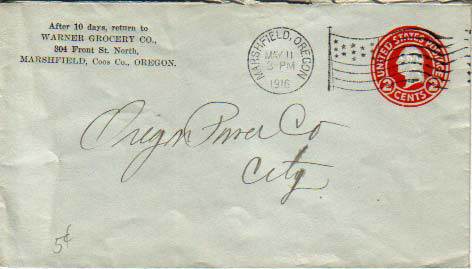 After 10 days, return to
WARNER GROCERY CO.,
304 Front St. North,
MARSHFIELD, Coos Co., OREGON.
MARSHFIELD, OREGON
MAY 11
3-PM
1916
UNITED STATES POSTAGE
2 CENTS 2
Oregn Power Co
City
5¢